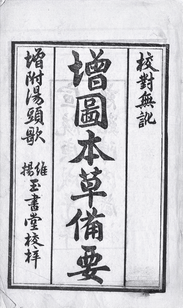 校對無訛
增圖本草備要
增附湯頭歌
維揚玉書堂校梓